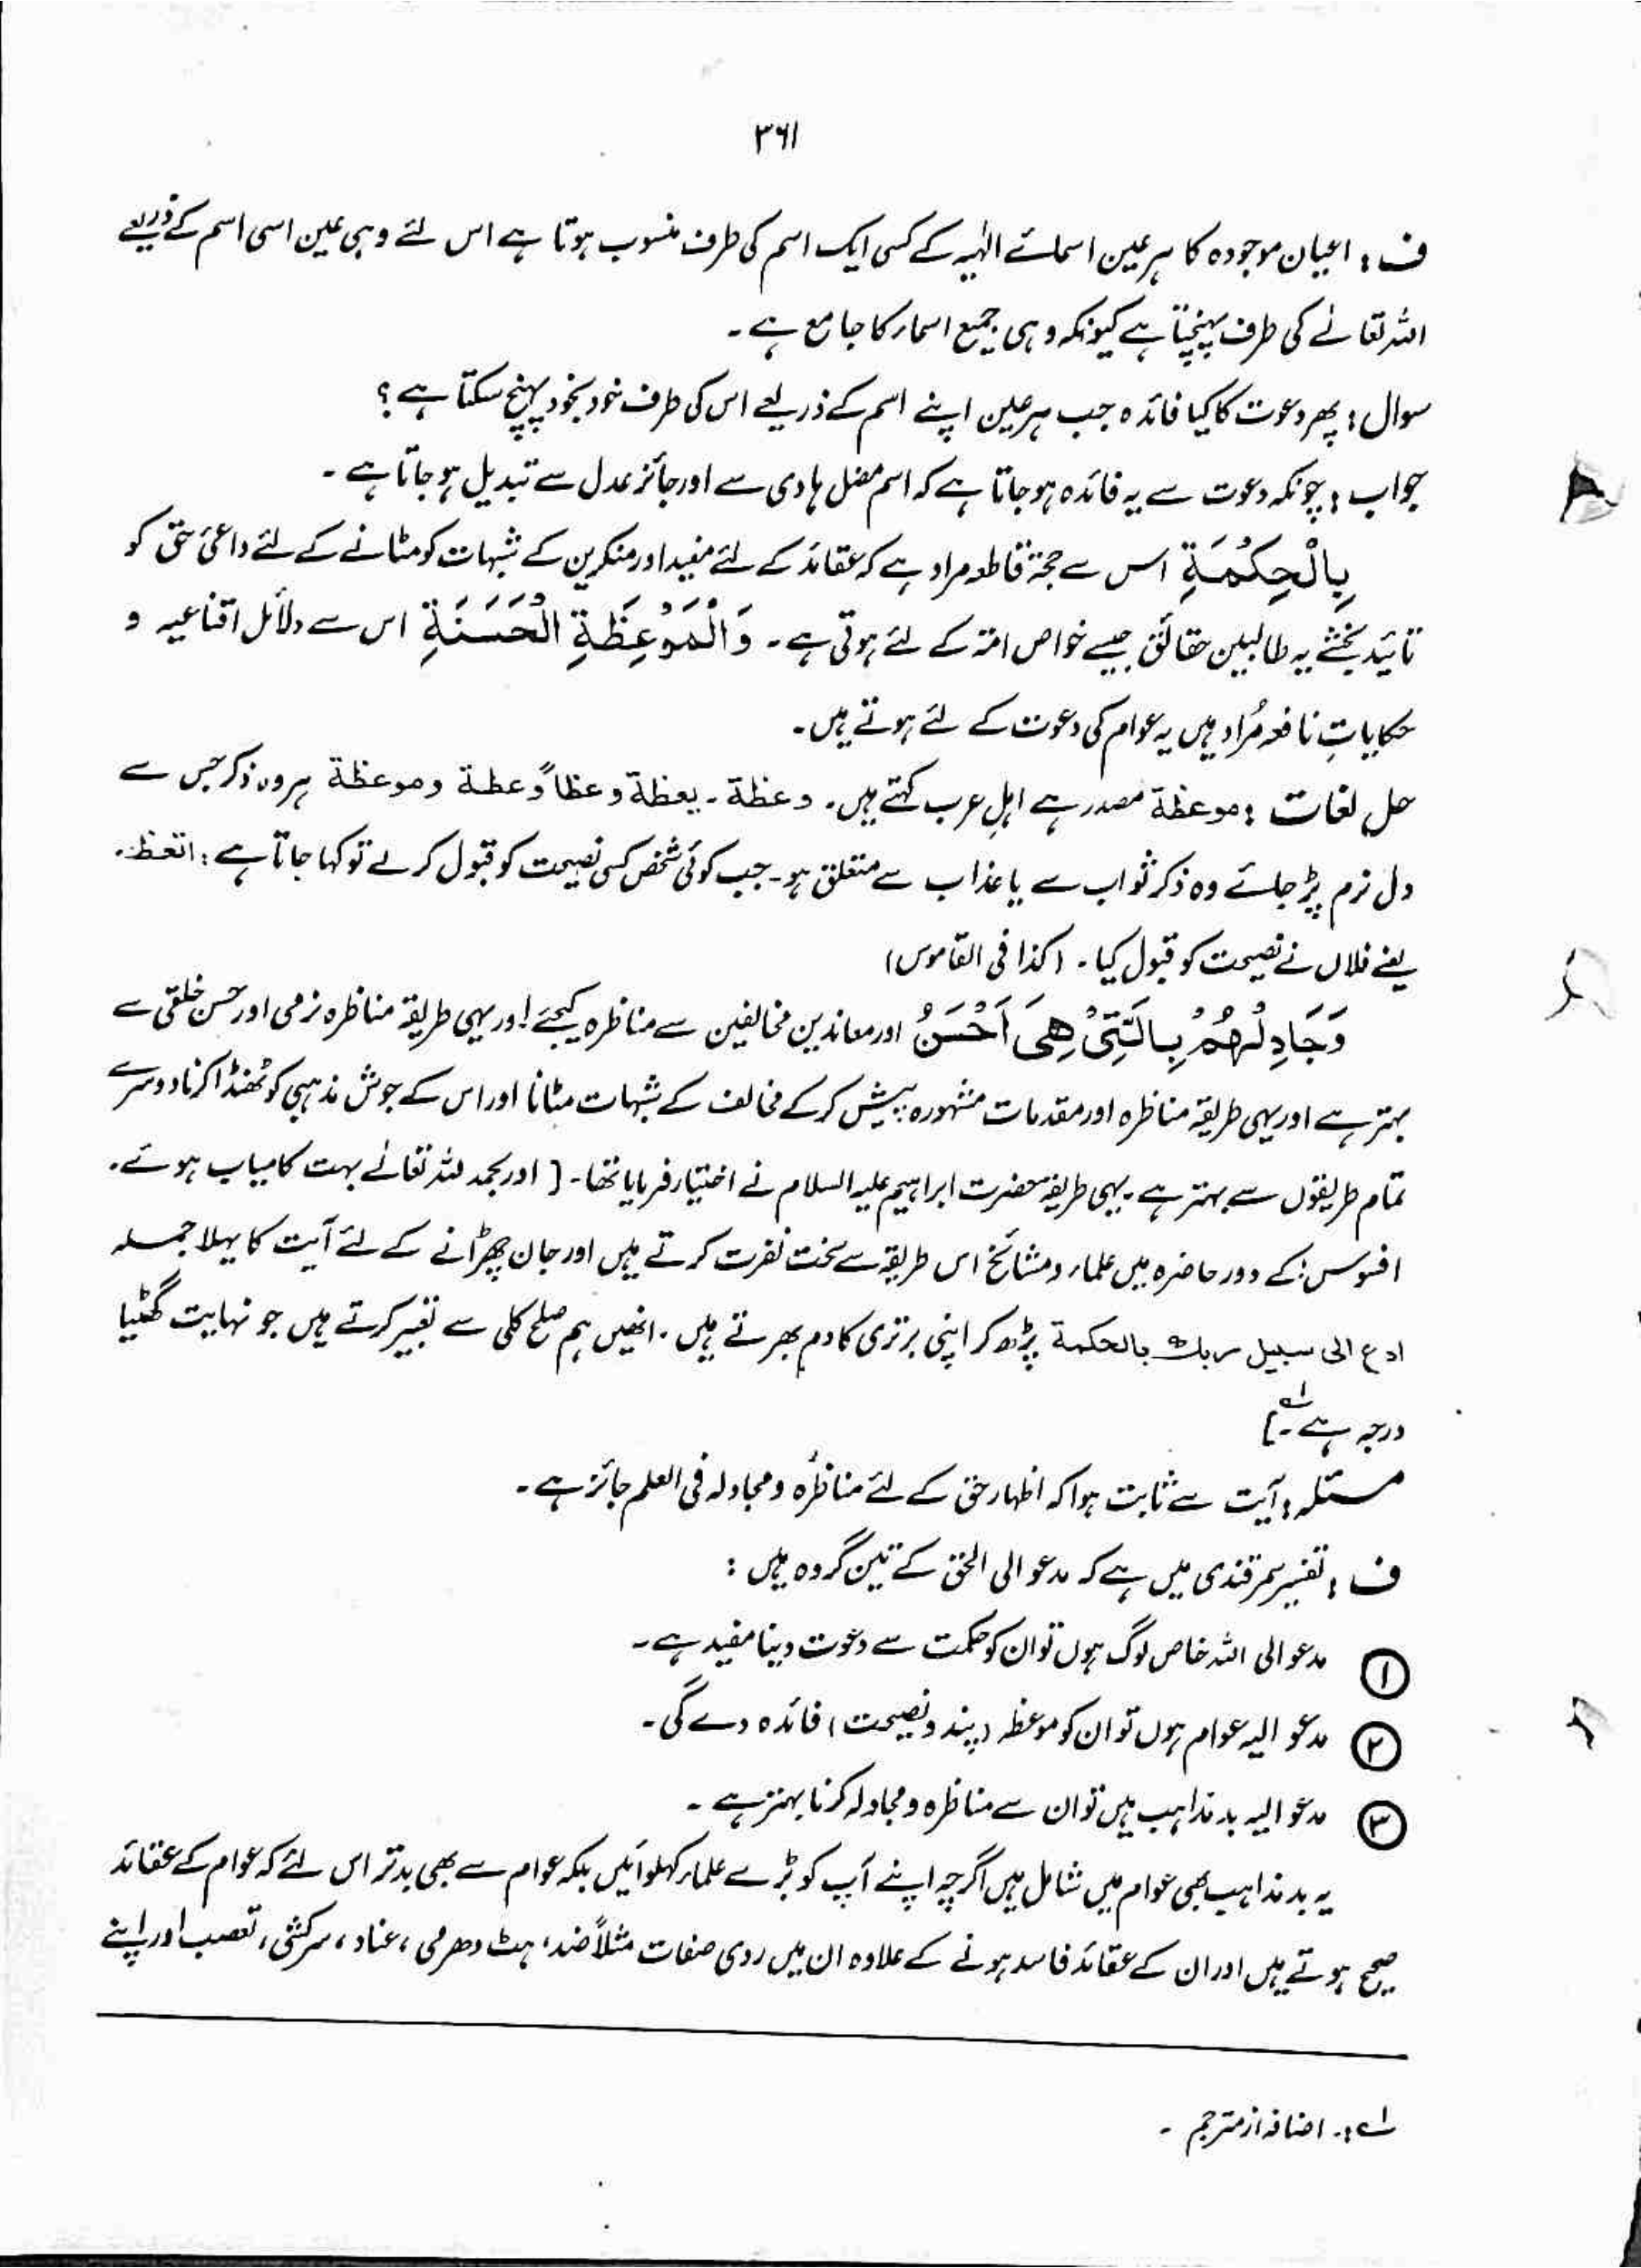 ۳۶۱
ف : اعیان موجودہ کا ہر عین اسمائے الٰہیہ کے کسی ایک اسم کی طرف منسوب ہوتا ہے اس لئے وہی عین اسی اسم کے ذریعے
اللہ تعالےٰ کی طرف پہنچتا ہے کیونکہ وہی جمیع اسماء کا جامع ہے۔
سوال : پھر دعوت کا کیا فائدہ جب ہر عین اپنے اسم کے ذریعے اس کی طرف خود بخود پہنچ سکتا ہے ؟
جواب : چونکہ دعوت سے یہ فائدہ ہو جاتا ہے کہ اسم مضل ہادی سے اور جائز عدل سے تبدیل ہو جاتا ہے ۔
بِالْحِكْمَةِ اس سے حجۃ قاطعہ مراد ہے کہ عقائد کے لئے مفید اور منکرین کے شبہات کو مٹانے کے لئے داعیٔ حق کو
تائید بخشے یہ طالبین حقائق جیسے خواص امتہ کے لئے ہوتی ہے۔ وَالْمَوْعِظَةِ الْحَسَنَةِ اس سے دلائل اقناعیہ و
حکایاتِ نافعہ مُراد ہیں یہ عوام کی دعوت کے لئے ہوتے ہیں۔
حل لغات : موعظة مصدر ہے اہلِ عرب کہتے ہیں۔ وعظة۔ یعظة وعظاً وعظة وموعظة ہر وہ ذکر جس سے
دل نرم پڑ جائے وہ ذکر ثواب سے یا عذاب سے متعلق ہو۔ جب کوئی شخص کسی نصیحت کو قبول کرلے تو کہا جاتا ہے : اتعظ۔
یعنے فلاں نے نصیحت کو قبول کیا ۔ (کذا فی القاموس)
وَجَادِلْهُمْ بِالَّتِىْ هِىَ اَحْسَنُ اور معاندین مخالفین سے مناظرہ کیجئے اور یہی طریقہ مناظرہ نرمی اور حسن خلقی سے
بہتر ہے اور یہی طریقہ مناظرہ اور مقدمات مشہورہ پیش کرکے مخالف کے شبہات مٹانا اور اس کے جوش مذہبی کو ٹھنڈا کرنا دوسرے
تمام طریقوں سے بہتر ہے۔ یہی طریقہ حضرت ابراہیم علیہ السلام نے اختیار فرمایا تھا۔ [ اور بحمد للہ تعالےٰ بہت کامیاب ہوئے۔
افسوس : کے دور حاضرہ میں علماء و مشائخ اس طریقہ سے سخت نفرت کرتے ہیں اور جان چھڑانے کے لئے آیت کا پہلا جملہ
ادع الی سبیل ربک بالحکمة پڑھ کر اپنی برتری کا دم بھرتے ہیں ۔ انھیں ہم صلح کلی سے تعبیر کرتے ہیں جو نہایت گھٹیا
درجہ ہے۔] لہ
مسئلہ : آیت سے ثابت ہوا کہ اظہار حق کے لئے مناظرہ و مجادلہ فی العلم جائز ہے ۔
ف : تفسیر سمرقندی میں ہے کہ مدعو الی الحق کے تین گروہ ہیں :
① مدعو الی اللہ خاص لوگ ہوں تو ان کو حکمت سے دعوت دینا مفید ہے۔
② مدعو الیہ عوام ہوں تو ان کو موعظہ (پند و نصیحت) فائدہ دے گی۔
③ مدعو الیہ بد مذاہب ہیں تو ان سے مناظرہ و مجادلہ کرنا بہتر ہے ۔
یہ بد مذاہب بھی عوام میں شامل ہیں اگرچہ اپنے آپ کو بڑے علماء کہلوائیں بلکہ عوام سے بھی بدتر اس لئے کہ عوام کے عقائد
صحیح ہوتے ہیں اور ان کے عقائد فاسد ہونے کے علاوہ ان میں ردی صفات مثلاً ضد، ہٹ دھرمی ، عناد ، سرکشی ، تعصب اور اپنے
لہ :۔ اضافہ از مترجم ۔